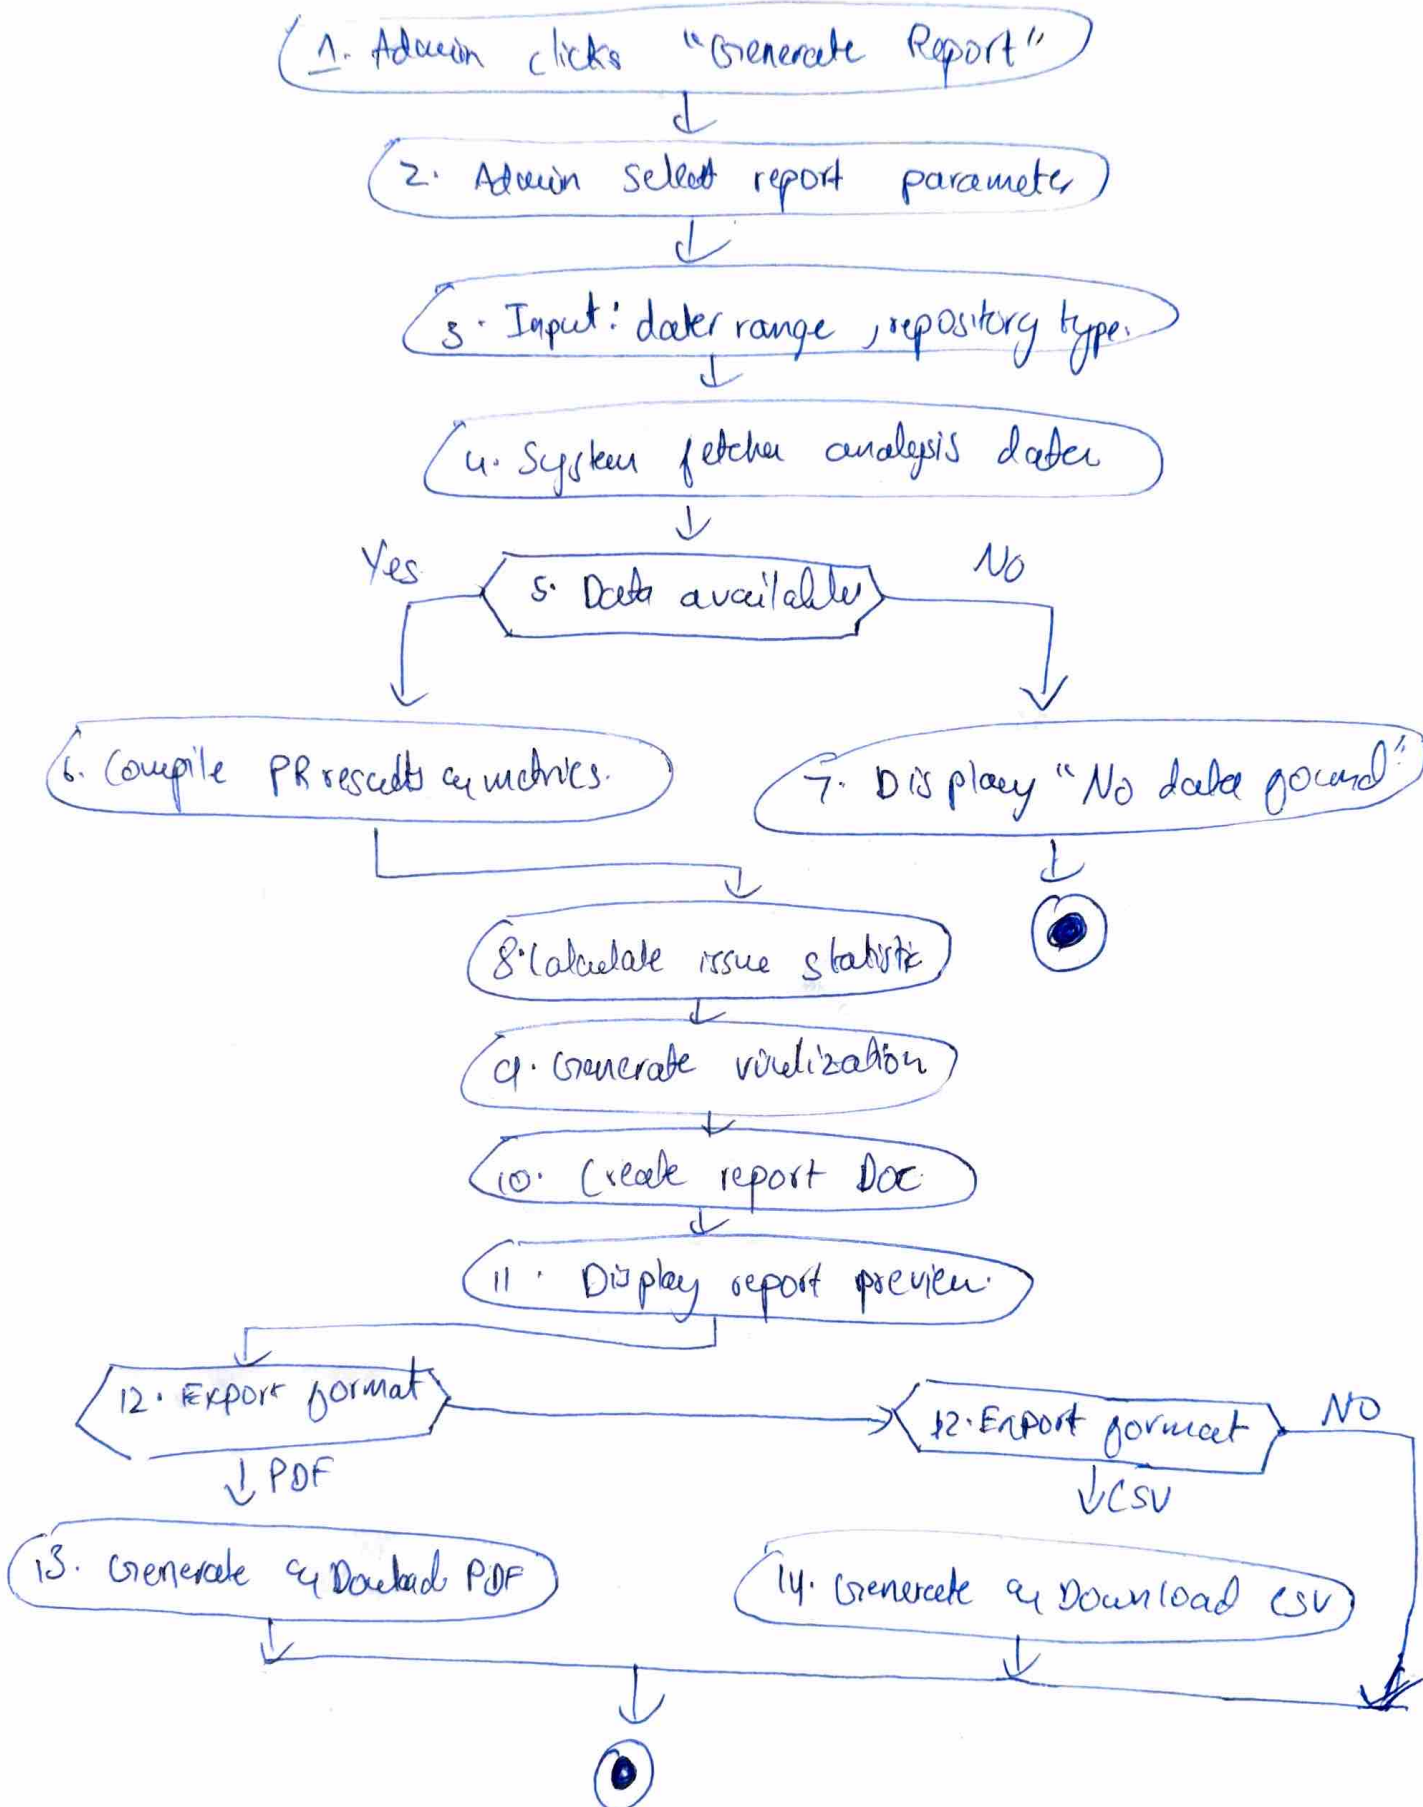 1. Admin clicks "Generate Report"
2. Admin select report parameter
3. Input: date range, repository type.
4. System fetches analysis data
Yes
No
5. Data available
6. Compile PR results & metrics.
7. Display "No data found"
8. Calculate issue statistic
9. Generate
10. Create report Doc
11. Display report preview.
12. Export format
12. Export format
NO
PDF
CSV
13. Generate & Download PDF
14. Generate & Download CSV